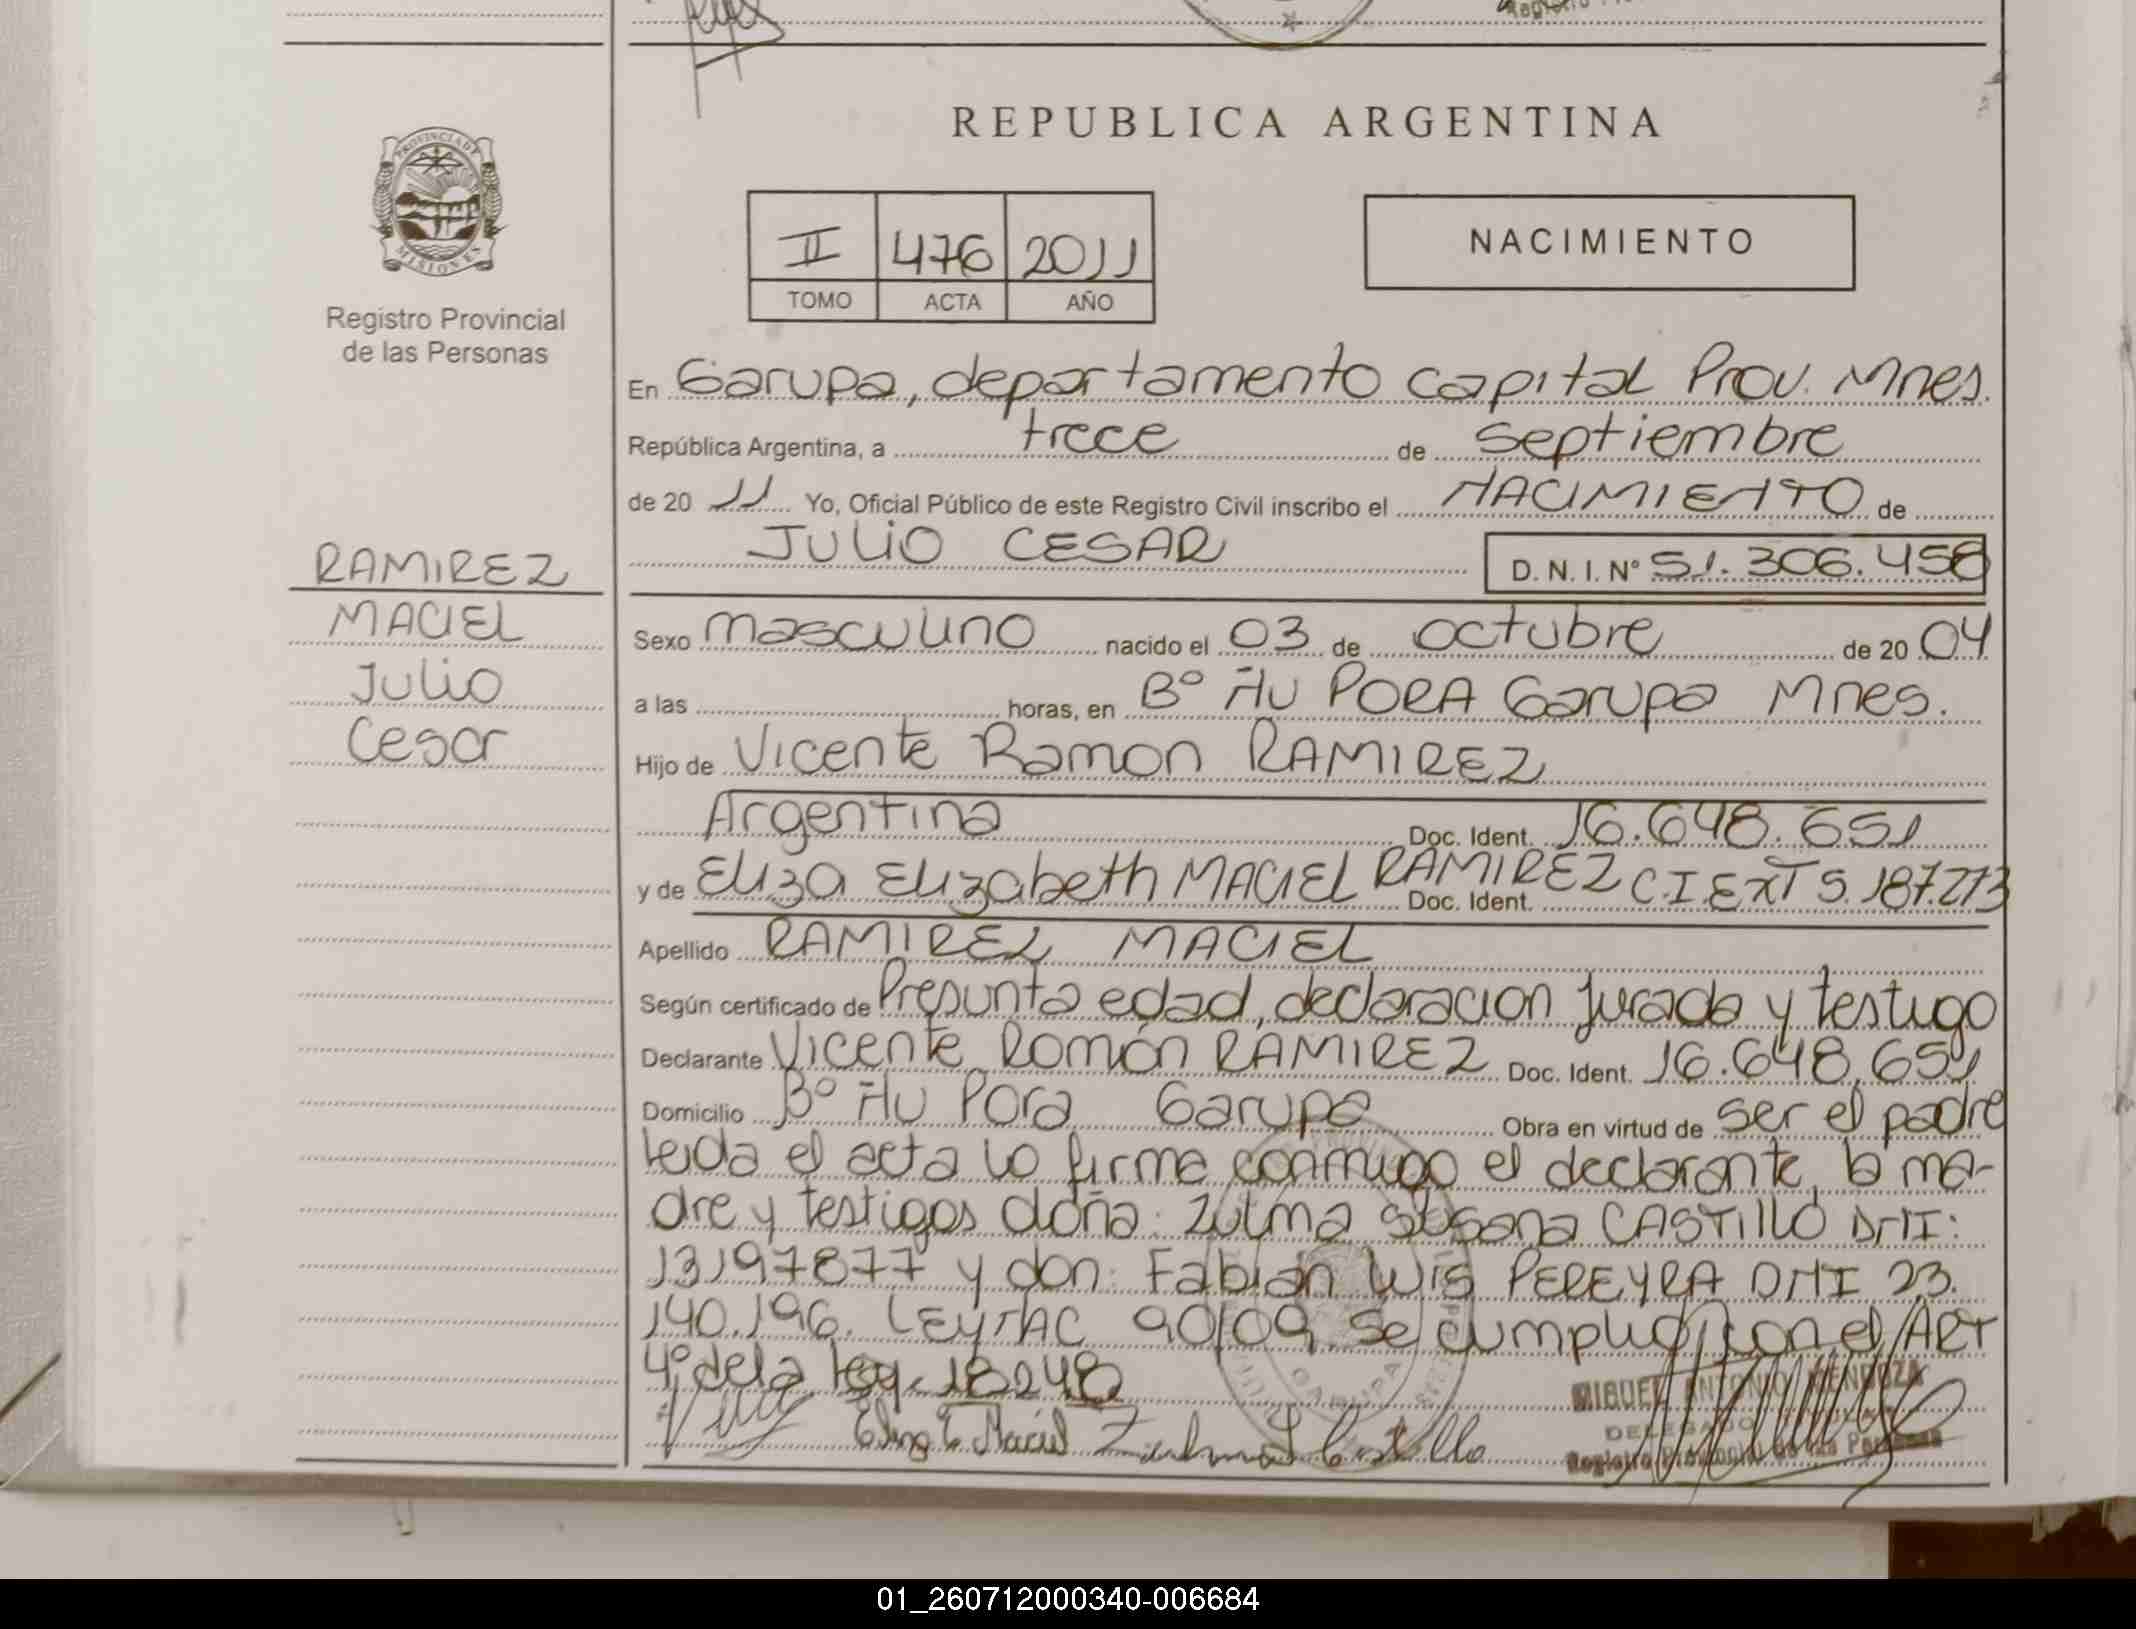 REPUBLICA ARGENTINA
PROVINCIA DE MISIONES
II 476 2011
TOMO ACTA AÑO
NACIMIENTO
Registro Provincial
de las Personas
RAMIREZ
MACIEL
Julio
Cesar
En Garupa, departamento Capital Prov. Mnes.
República Argentina, a trece de septiembre
de 20 11 Yo, Oficial Público de este Registro Civil inscribo el NACIMIENTO de
JULIO CESAR D. N. I. Nº 51.306.458
Sexo masculino nacido el 03 de octubre de 20 04
a las horas, en Bº ÑU PORA Garupa Mnes.
Hijo de Vicente Ramon RAMIREZ
Argentina Doc. Ident. 16.648.651
y de Eliza Elizabeth MACIEL RAMIREZ Doc. Ident. C.I.EXT 5.187.273
Apellido RAMIREZ MACIEL
Según certificado de Presunta edad, declaracion Jurada y testigo
Declarante Vicente Román RAMIREZ Doc. Ident. 16.648.651
Domicilio Bº ÑU Pora Garupa Obra en virtud de ser el padre
leida el acta lo firma conmigo el declarante, la ma-
dre y testigos doña: Zulma Susana CASTILLO DNI:
13197877 y don: Fabián Luis PEREYRA DNI 23.
140.196. LEY NAC 90/09 se cumplio con el ART
4º de la Ley. 18248
Maciel Zulma S Castillo
MIGUEL ANTONIO MENDOZA
DELEGADO
Registro Provincial de las Personas
GARUPA
01_260712000340-006684